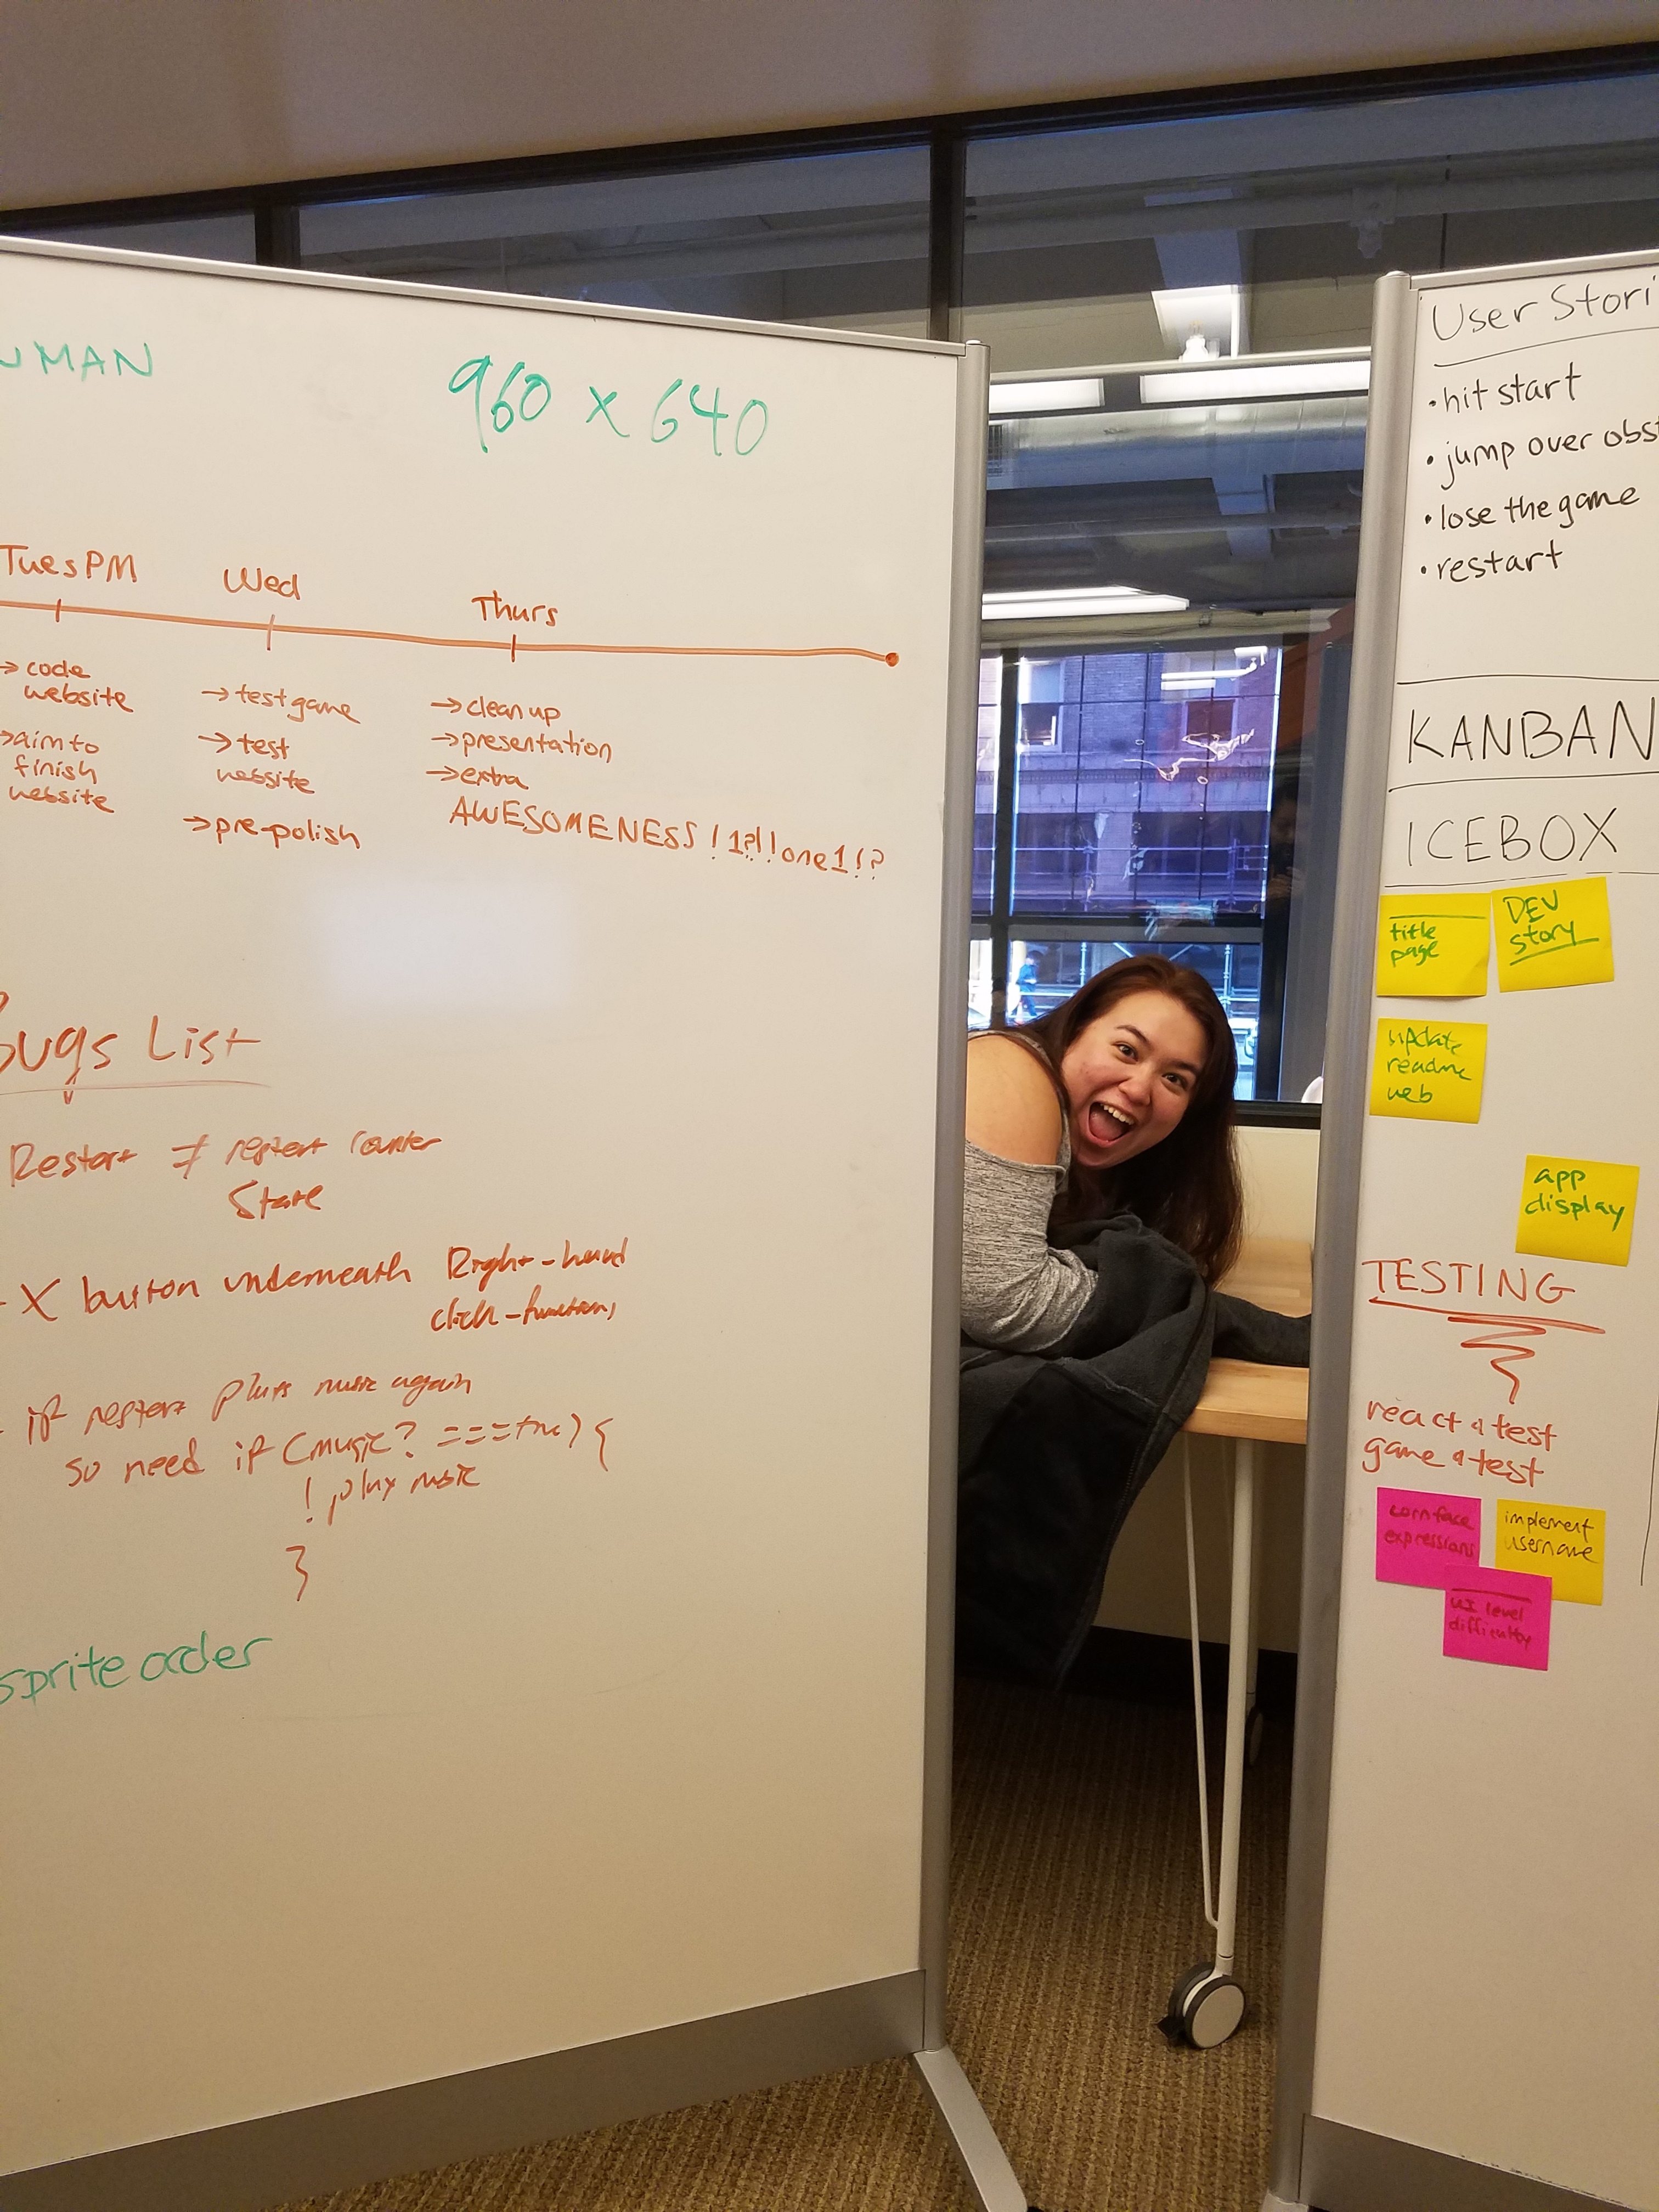 UMAN
960 x 640
Tues PM
Wed
Thurs
→ code
website
→ aim to
finish
website
→ test game
→ test
website
→ pre-polish
→ clean up
→ presentation
→ extra
AWESOMENESS !1?!!one1!?
Bugs List
Restart ≠ restart counter
State
- X button underneath Right-hand
click-functions
- if restart plays music again
so need if (music? === true) {
! play music
}
sprite order
User Stori
• hit start
• jump over obst
• lose the game
• restart
KANBAN
ICEBOX
title
page
DEV
story
update
readme
web
app
display
TESTING
react & test
game & test
corn face
expressions
implement
username
UI level
difficulty